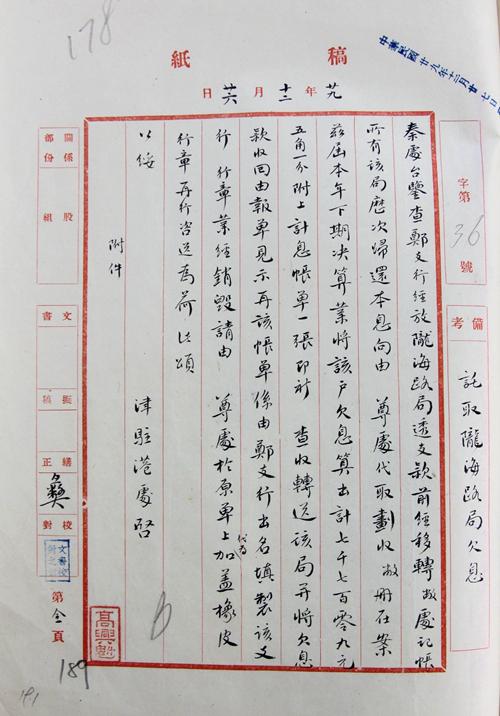 178
中華民國廿九年十二月廿七日
稿紙
廿九年十二月廿六日
字第36號
備考
託取隴海路局欠息
秦處台鑒查鄭支行經放隴海路局透支款前經移轉敝處記帳
所有該局歷次歸還本息向由 尊處代取劃收敝冊在案
茲屆本年下期決算業將該戶欠息算出計七千七百零九元
五角一分附上計息帳單一張即祈 查收轉送該局并將欠息
款收回由報單見示再該帳單係由鄭支行出名代為填製該支
行 行章業經銷毀請由 尊處於原單上加蓋橡皮
行章再行咨送為荷此頌
公綏
津駐港處啓
附件
關係部份
股組
文書
擬稿
繕正
校對
第全頁
189
191